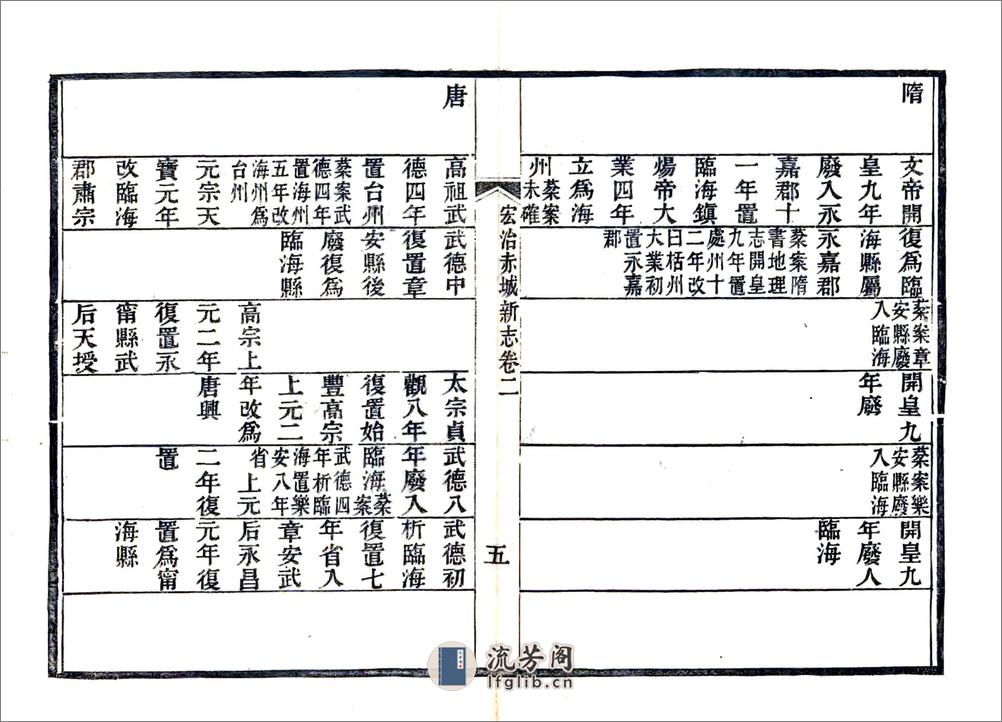 隋
文帝開
皇九年
廢入永
嘉郡十
一年置
臨海鎮
煬帝大
業四年
立為海
州蔡案
未確
復為臨
海縣屬
永嘉郡
蔡案隋
書地理
志開皇
九年置
處州十
二年改
曰栝州
大業初
置永嘉
郡
蔡案章
安縣廢
入臨海
開皇九
年廢
蔡案樂
安縣廢
入臨海
開皇九
年廢人
臨海
宏治赤城新志卷二
五
唐
高祖武
德四年
置台州
蔡案武
德四年
置海州
五年改
海州為
台州
元宗天
寶元年
改臨海
郡肅宗
武德中
復置章
安縣後
廢復為
臨海縣
高宗上
元二年
復置永
甯縣武
后天授
太宗貞
觀八年
復置始
豐高宗
上元二
年改為
唐興
武德八
年廢入
臨海蔡
案
武德四
年析臨
海置樂
安八年
省上元
二年復
置
武德初
析臨海
復置七
年省入
章安武
后永昌
元年復
置為甯
海縣
流芳阁
lfglib.cn